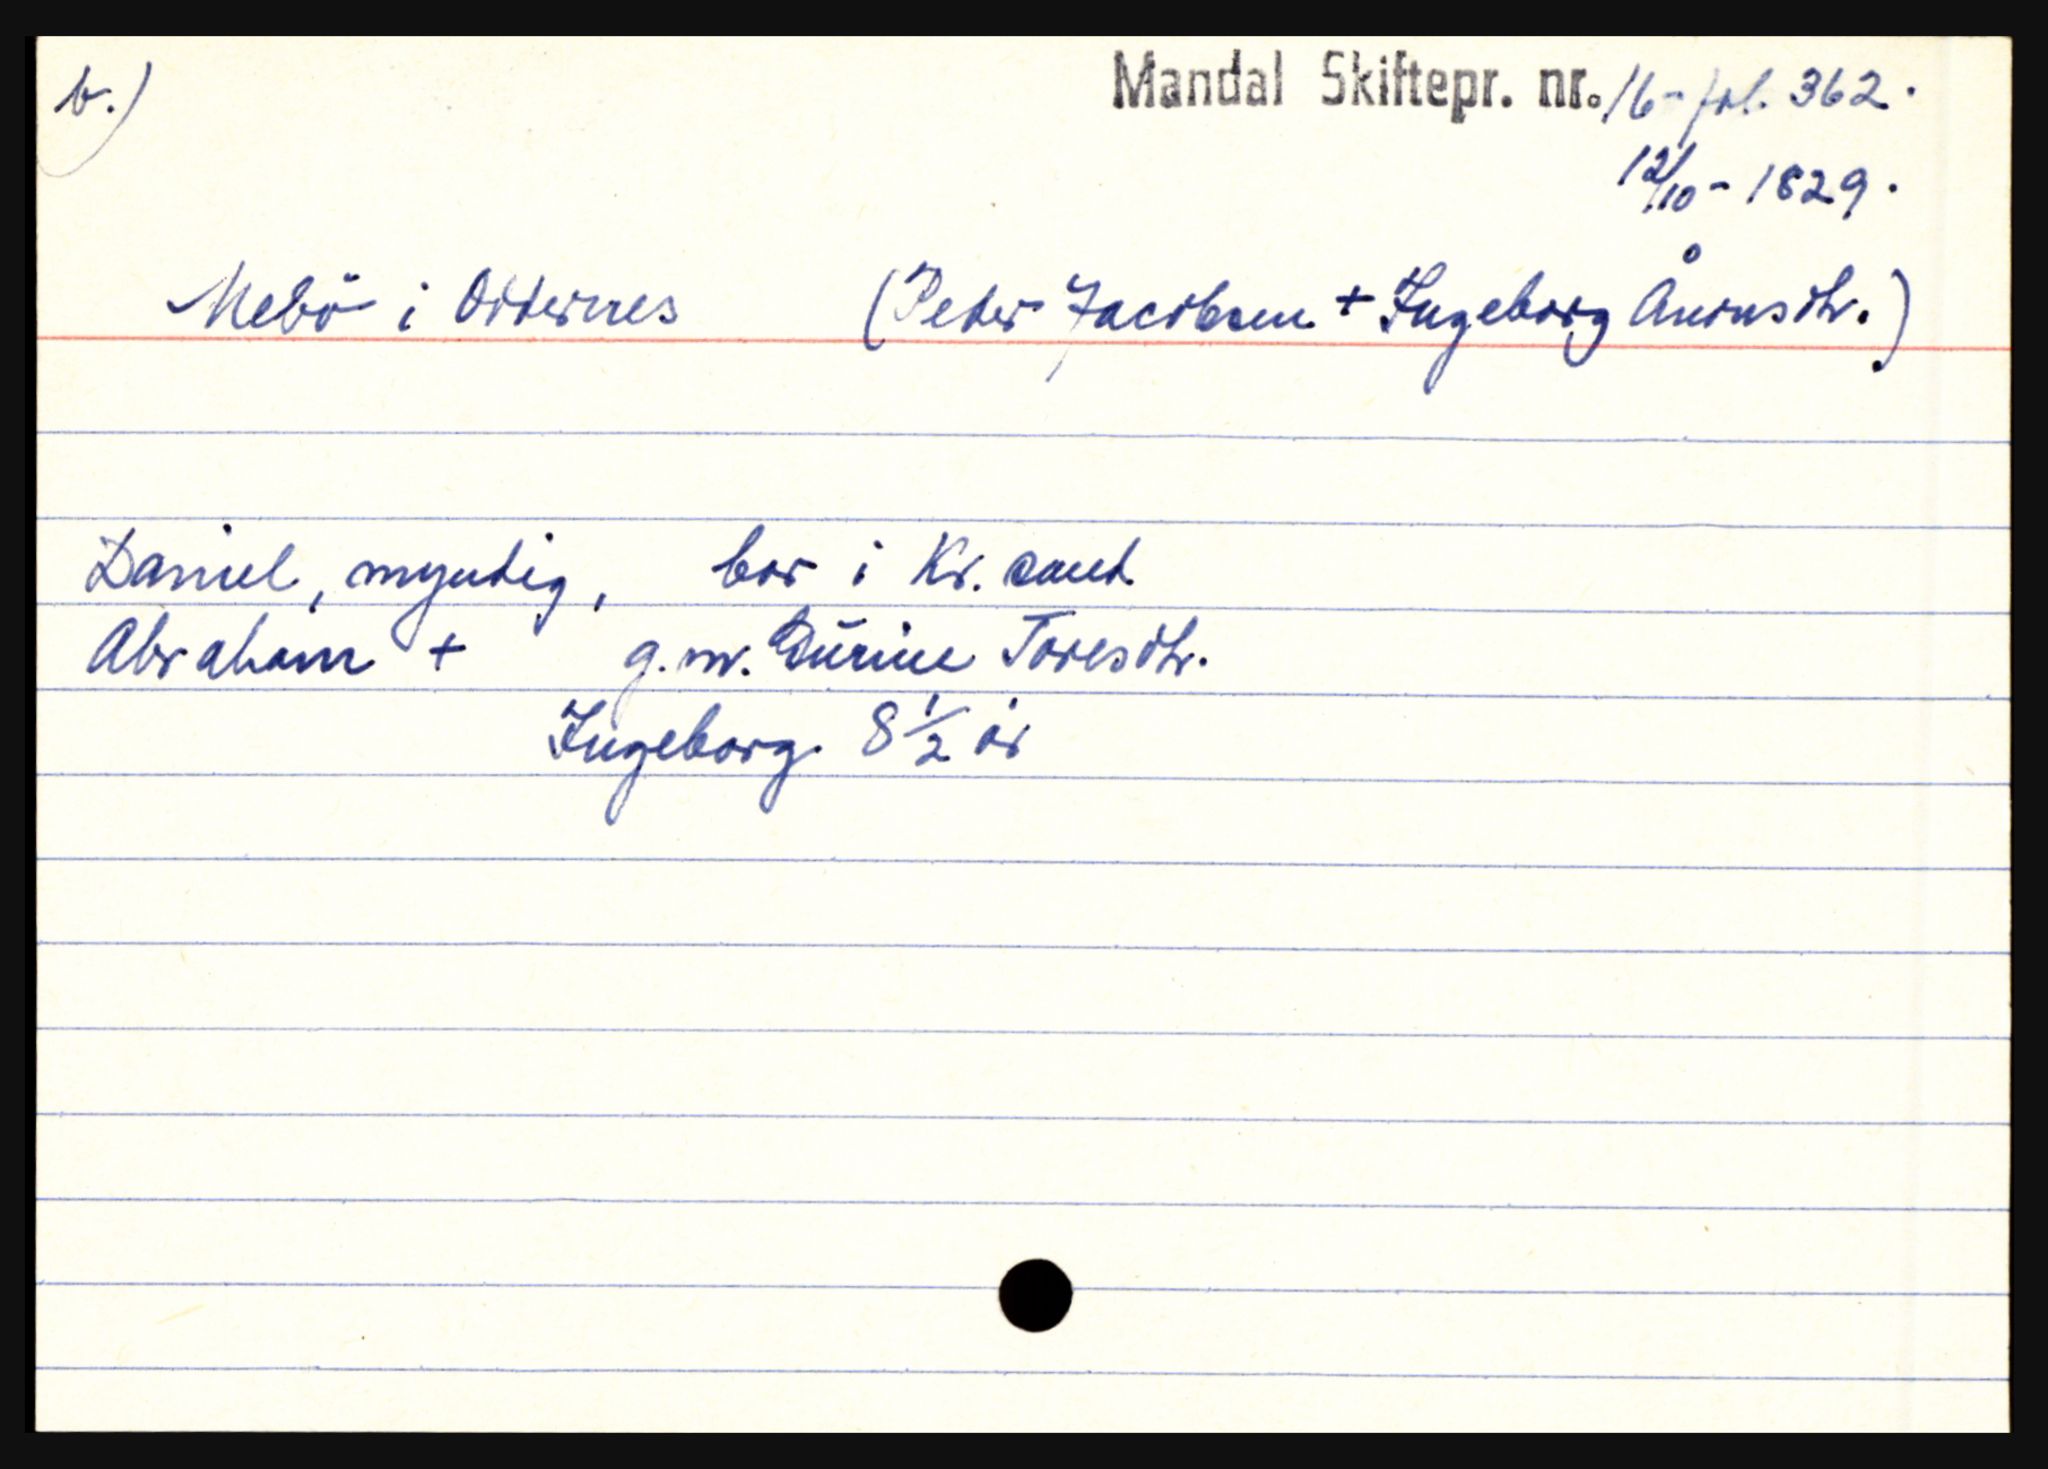 b.)
Mandal Skiftepr. nr. 16 - fol. 362.
12/10 - 1829.
Mebö i Otternes (Peder Jacobsen + Ingeborg Ånonsdtr.)
Daniel, myndig, bor i Kr. sand
Abraham + g.m. Surine Toresdtr.
Ingeborg 8 1/2 år